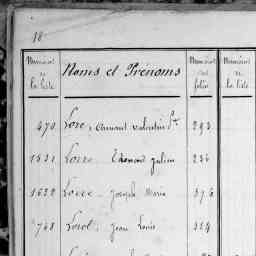 18
Numéros de la liste Noms et Prénoms Numéros des folios Numéros de la liste
470 Lore, Amant valentin 293
1531 Lorre Edmond julien 236
1632 Lorre Joseph Marie 376
768 Lorot Jean Louis 324